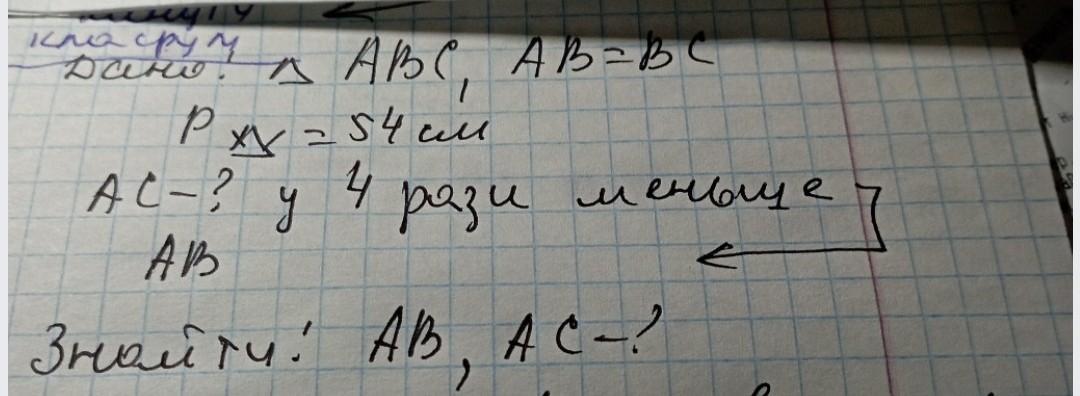 класрум
Дано: △ ABC, AB=BC
P△ = 54 см
AC-? у 4 рази меньше
AB
Знайти: AB, AC-?